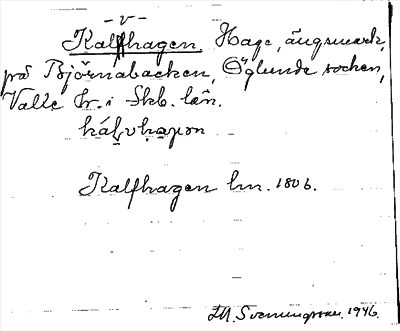 -v-
Kalfhagen. Hage, ängsmark,
på Björnabacken, Öglunda socken,
Valle hr. i Skb. län.
kálvhagon
Kalfhagen lm. 1806.
M. Svenungsson. 1946.